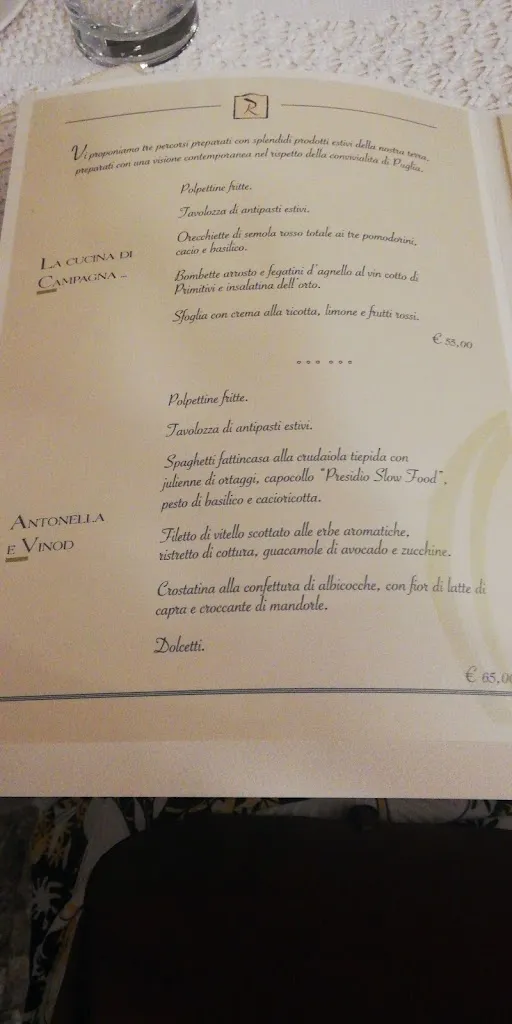 R
Vi proponiamo tre percorsi preparati con splendidi prodotti estivi della nostra terra,
preparati con una visione contemporanea nel rispetto della convivialità di Puglia.
LA CUCINA DI
CAMPAGNA ...
Polpettine fritte.
Tavolozza di antipasti estivi.
Orecchiette di semola rosso totale ai tre pomodorini,
cacio e basilico.
Bombette arrosto e fegatini d'agnello al vin cotto di
Primitivi e insalatina dell'orto.
Sfoglia con crema alla ricotta, limone e frutti rossi.
€ 55,00
ANTONELLA
E VINOD
Polpettine fritte.
Tavolozza di antipasti estivi.
Spaghetti fattincasa alla crudaiola tiepida con
julienne di ortaggi, capocollo "Presidio Slow Food",
pesto di basilico e cacioricotta.
Filetto di vitello scottato alle erbe aromatiche,
ristretto di cottura, guacamole di avocado e zucchine.
Crostatina alla confettura di albicocche, con fior di latte di
capra e croccante di mandorle.
Dolcetti.
€ 65,00